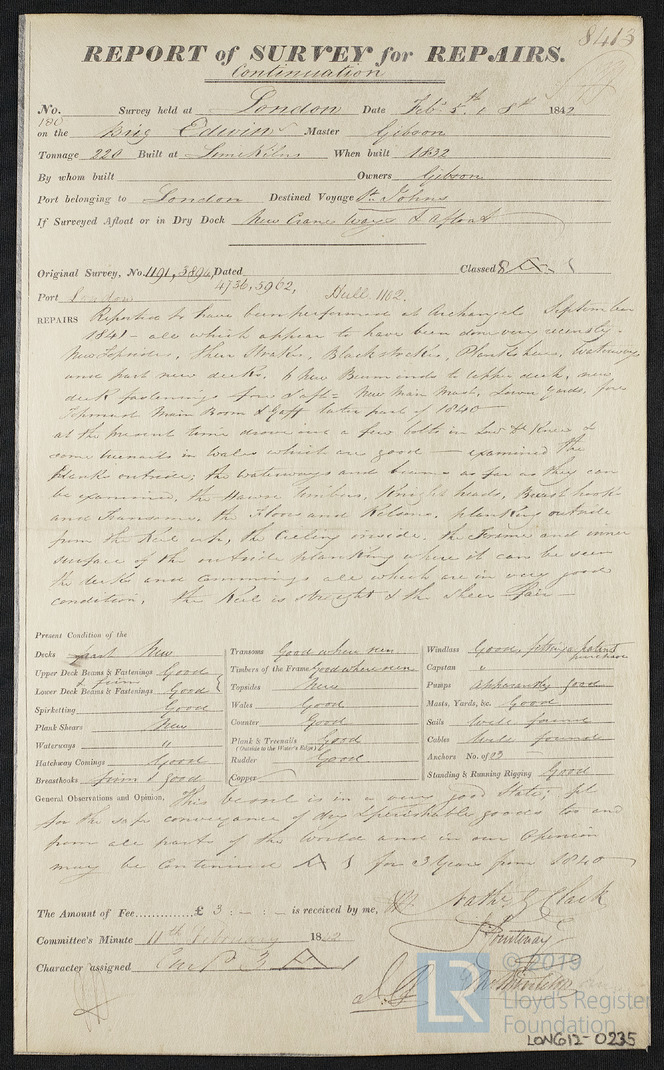 8413
REPORT of SURVEY for REPAIRS.
Continuation
No. 180 Survey held at London Date Feb. 5th & 8th 1842
on the Brig Edwin Master Gibson
Tonnage 220 Built at Limekilns When built 1832
By whom built Owners Gibson
Port belonging to London Destined Voyage St. Johns
If Surveyed Afloat or in Dry Dock New Crane Ways & afloat
Original Survey, No. 1191, 3896, Dated Classed 8 A 1
4736, 5962,
Port London Hull 1162.
REPAIRS Reported to have been performed at Archangel September
1841 - all which appear to have been done very recently -
New Topsides, Sheer Strakes, Blackstrakes, Planksheers, Waterways
and part new decks, 6 New Beam ends to upper deck, new
deck fastenings fore & aft - New Main Mast, Lower Yards, fore
Topmast Main Boom & Gaff latter part of 1840
at the present time drove out a few bolts in Low Dk Knees &
some treenails in Wales which are good - examined the
planks outside; the waterways and beams as far as they can
be examined, the Hawse timbers, Knight heads, Breast hooks
and Transoms, the Floors and Kelsons, planking outside
from the Keel up, the Ceiling inside, the Frame and inner
surface of the outside planking where it can be seen
the decks and commings all which are in very good
condition, the Keel is straight & the sheer fair -
Present Condition of the
Decks part New
Upper Deck Beams & Fastenings Good
& firm
Lower Deck Beams & Fastenings Good
Spirketting Good
Plank Shears New
Waterways "
Hatchway Comings Good
Breasthooks firm & good
Transoms Good where seen
Timbers of the Frame Good where seen
Topsides New
Wales Good
Counter Good
Plank & Treenails Good
(Outside to the Water's Edge)
Rudder Good
Copper
Windlass Good, fitting a patent
purchase
Capstan "
Pumps apparently good
Masts, Yards, &c. Good
Sails Well found
Cables Well found
Anchors No. of 3
Standing & Running Rigging Good
General Observations and Opinion, This vessel is in a very good State; fit
for the safe conveyance of dry & perishable goods to and
from all parts of the World and in our Opinion
may be Continued A 1 for 3 Years from 1840
The Amount of Fee............£ 3 : - : - is received by me, Nathl G Clark
Committee's Minute 11th February 1842 J Courtenay
Character assigned Cont. 3 A 1
© 2019
LR
Lloyd's Register
Foundation
LON612-0235